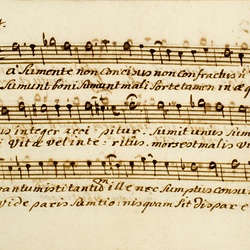 a Sumente non Concisus non Confractus n
Sumunt boni Sumunt mali Sorte tamen in æq
us integer acci pitur. Sumit unius Sum
Vitæ vel inte: ritus. mors est malis v
antum isti tantũ ille nec Sumptus consu
Vide paris Sumtio: nis quam Sit Dispar e